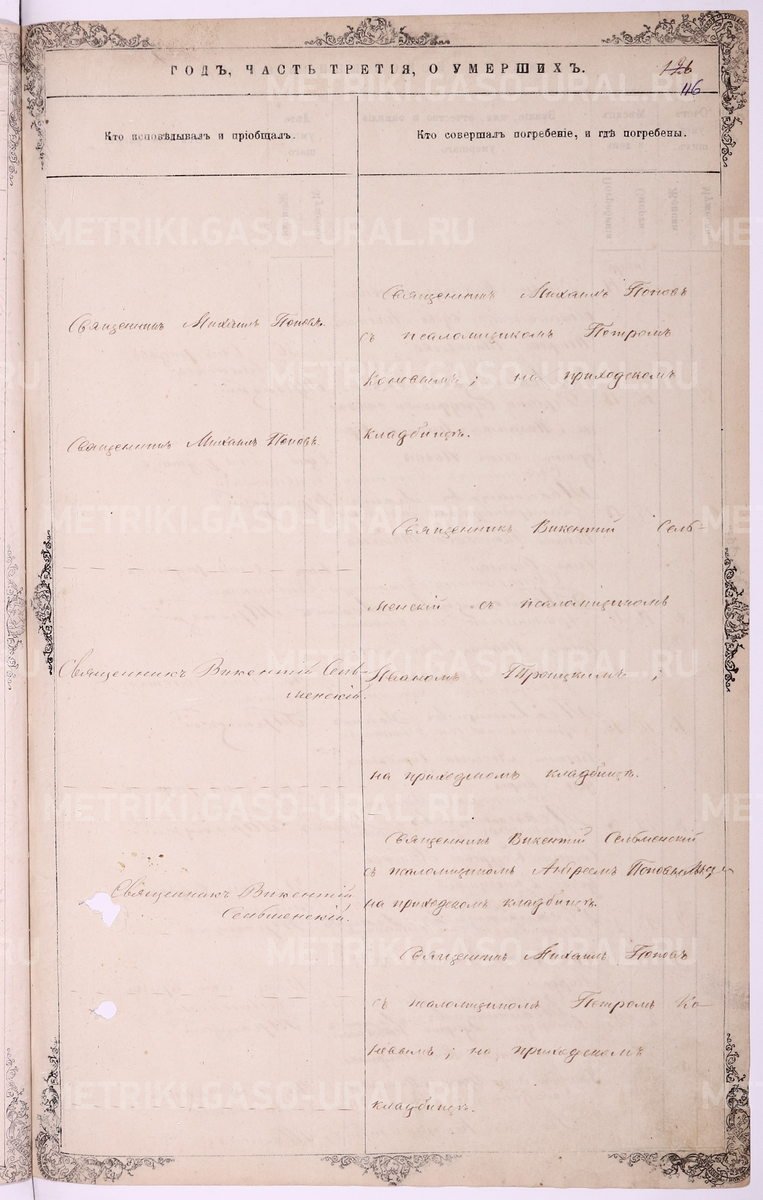 ГОДЪ, ЧАСТЬ ТРЕТІЯ, О УМЕРШИХЪ.
46
Кто исповѣдывалъ и пріобщалъ.
Кто совершалъ погребеніе, и гдѣ погребены.
Священникъ Михаилъ Поповъ.
Священникъ Михаилъ Поповъ.
Священникъ Викентій Сель-
менскій.
Священникъ Викентій
Сельменскій.
Священникъ Михаилъ Поповъ
съ псаломщикомъ Петромъ
Коневымъ; на приходскомъ
кладбищѣ.
Священникъ Викентій Сель-
менскій съ псаломщикомъ
Иваномъ Троицкимъ;
на приходскомъ кладбищѣ.
Священникъ Викентій Сельменскій
съ псаломщикомъ Андреемъ
на приходскомъ кладбищѣ.
Священникъ Михаилъ Поповъ
съ псаломщикомъ Петромъ Ко-
невымъ; на приходскомъ
кладбищѣ.
METRIKI.GASO-URAL.RU